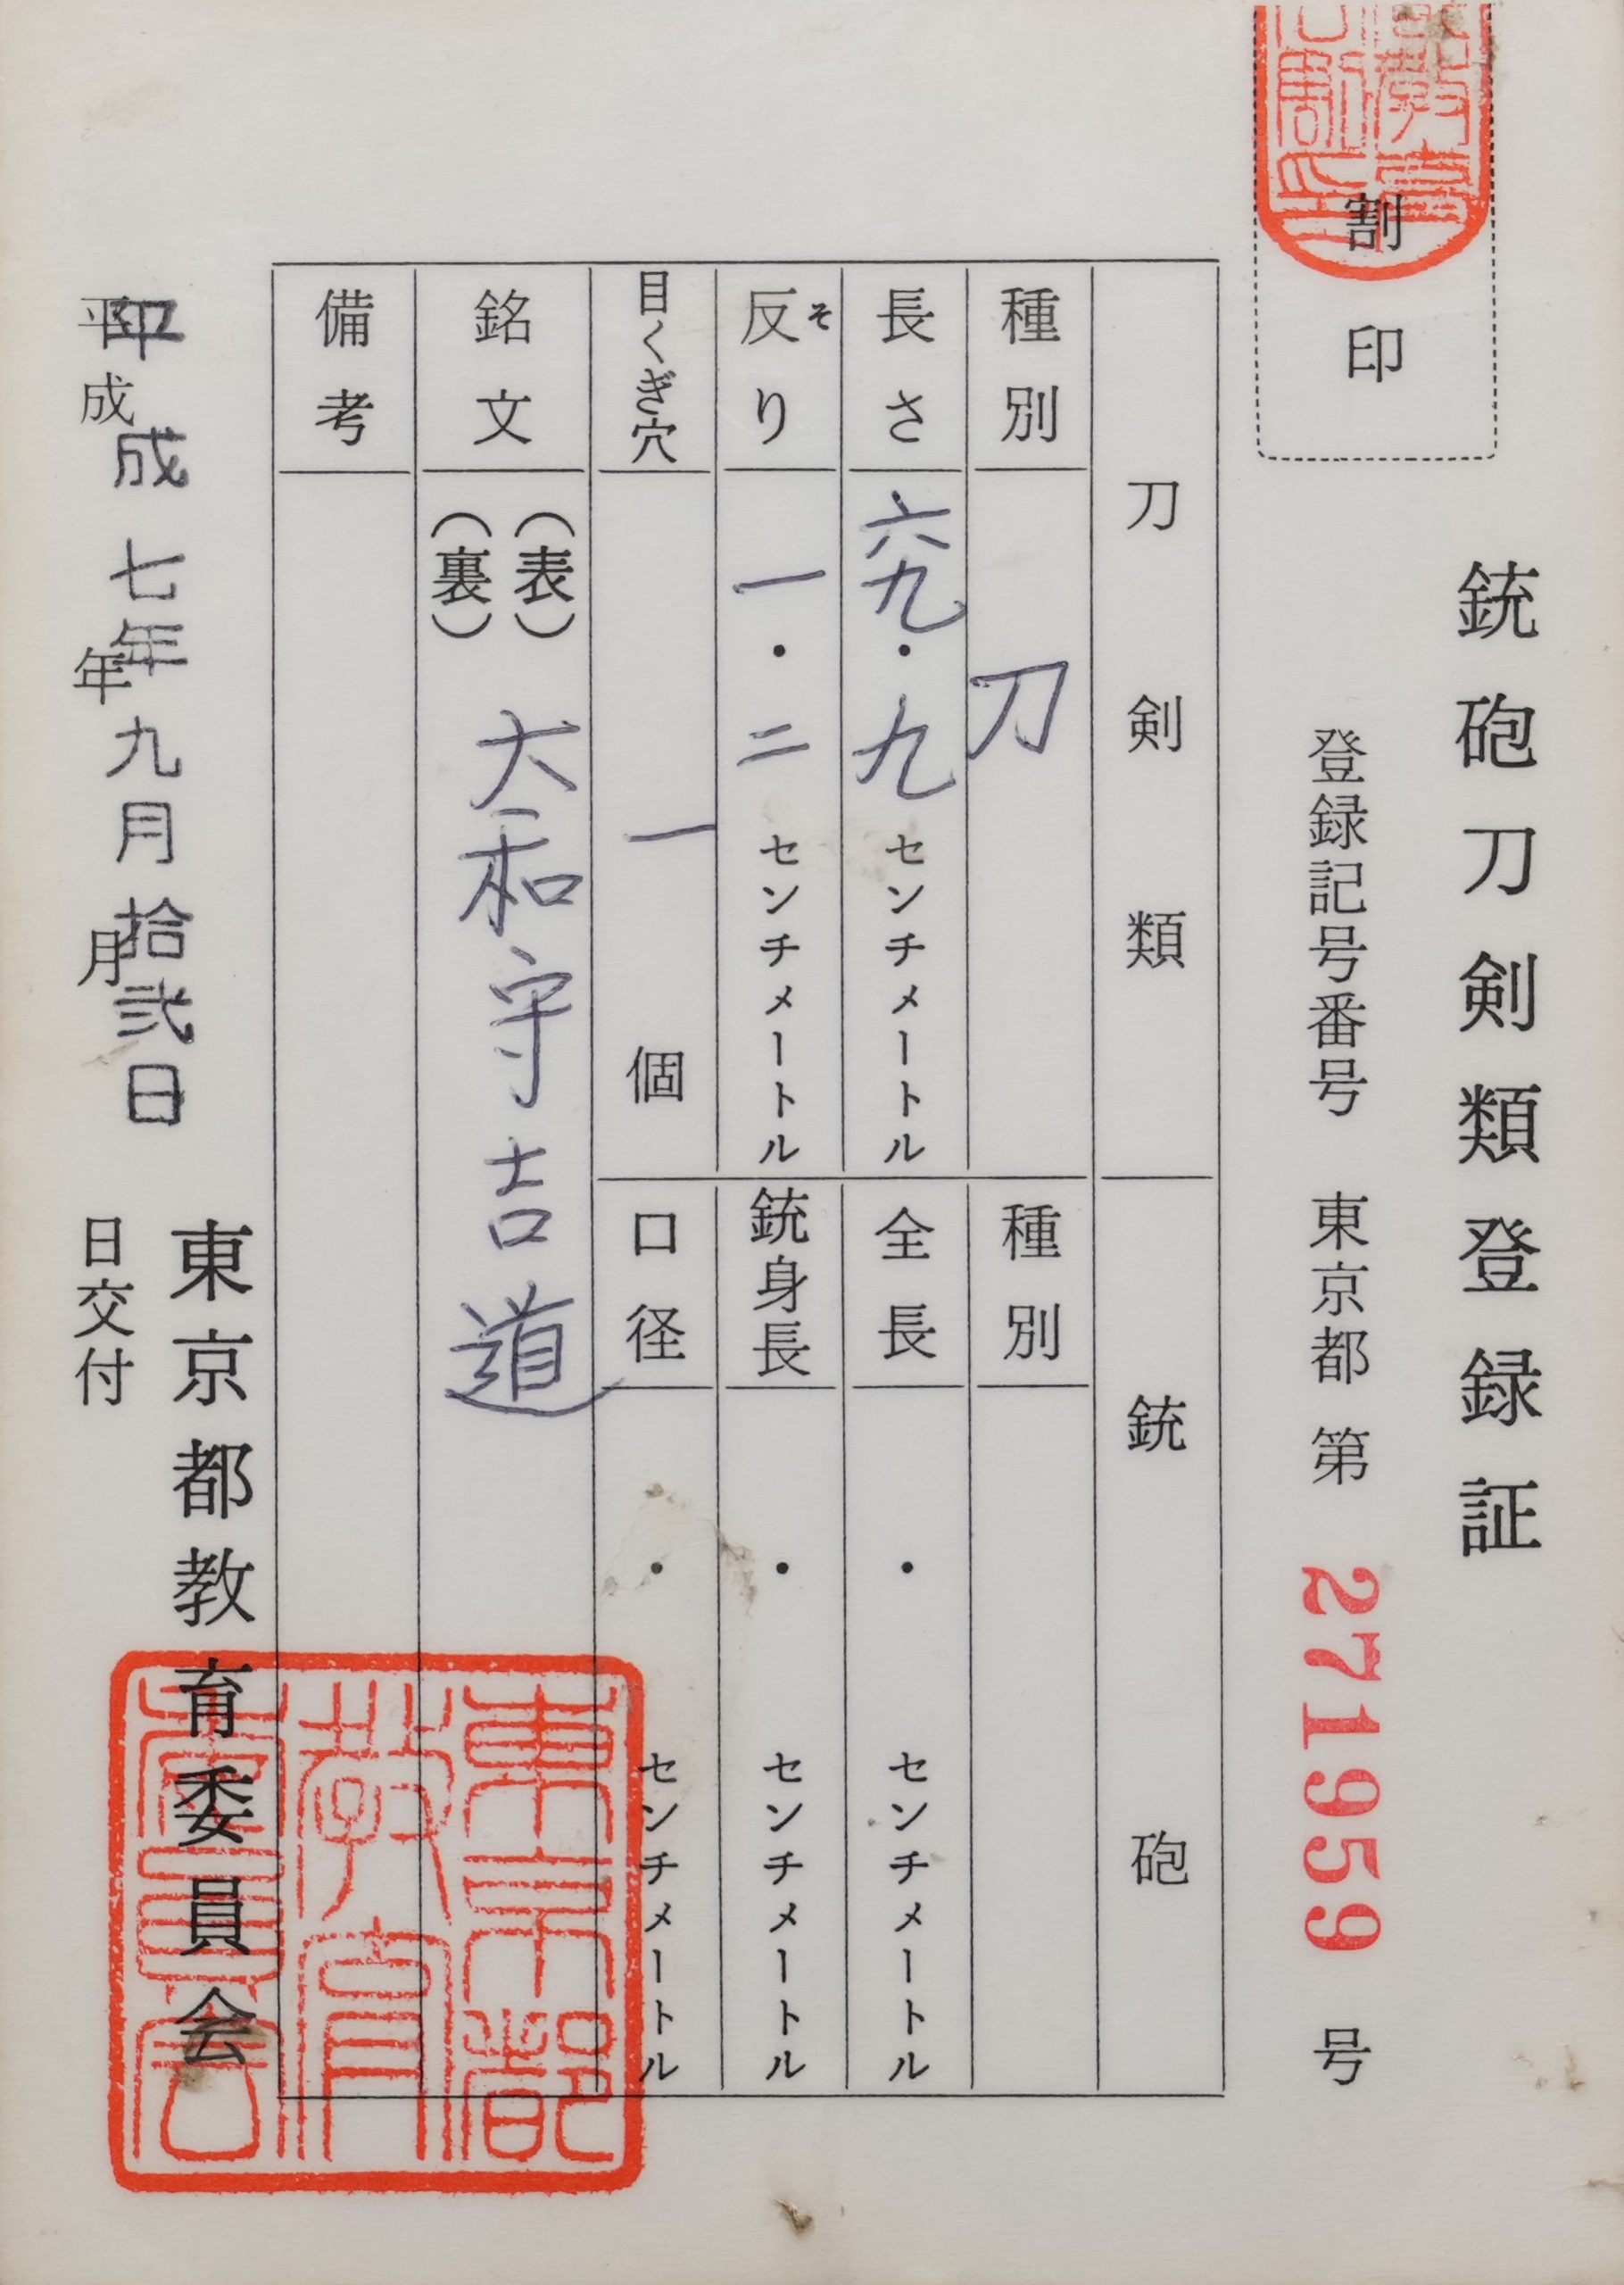 割印
銃砲刀剣類登録証
登録記号番号 東京都 第 271959 号
刀剣類
種別 刀
長さ 六九・九 センチメートル
反り そ 一・二 センチメートル
目くぎ穴 一 個
銘文 (表) 大和守吉道
(裏)
備考
銃砲
種別
全長 ・ センチメートル
銃身長 ・ センチメートル
口径 ・ センチメートル
東京都教育委員会
平成七年九月拾弐日
平成 年 月 日交付
東京都教育委員会